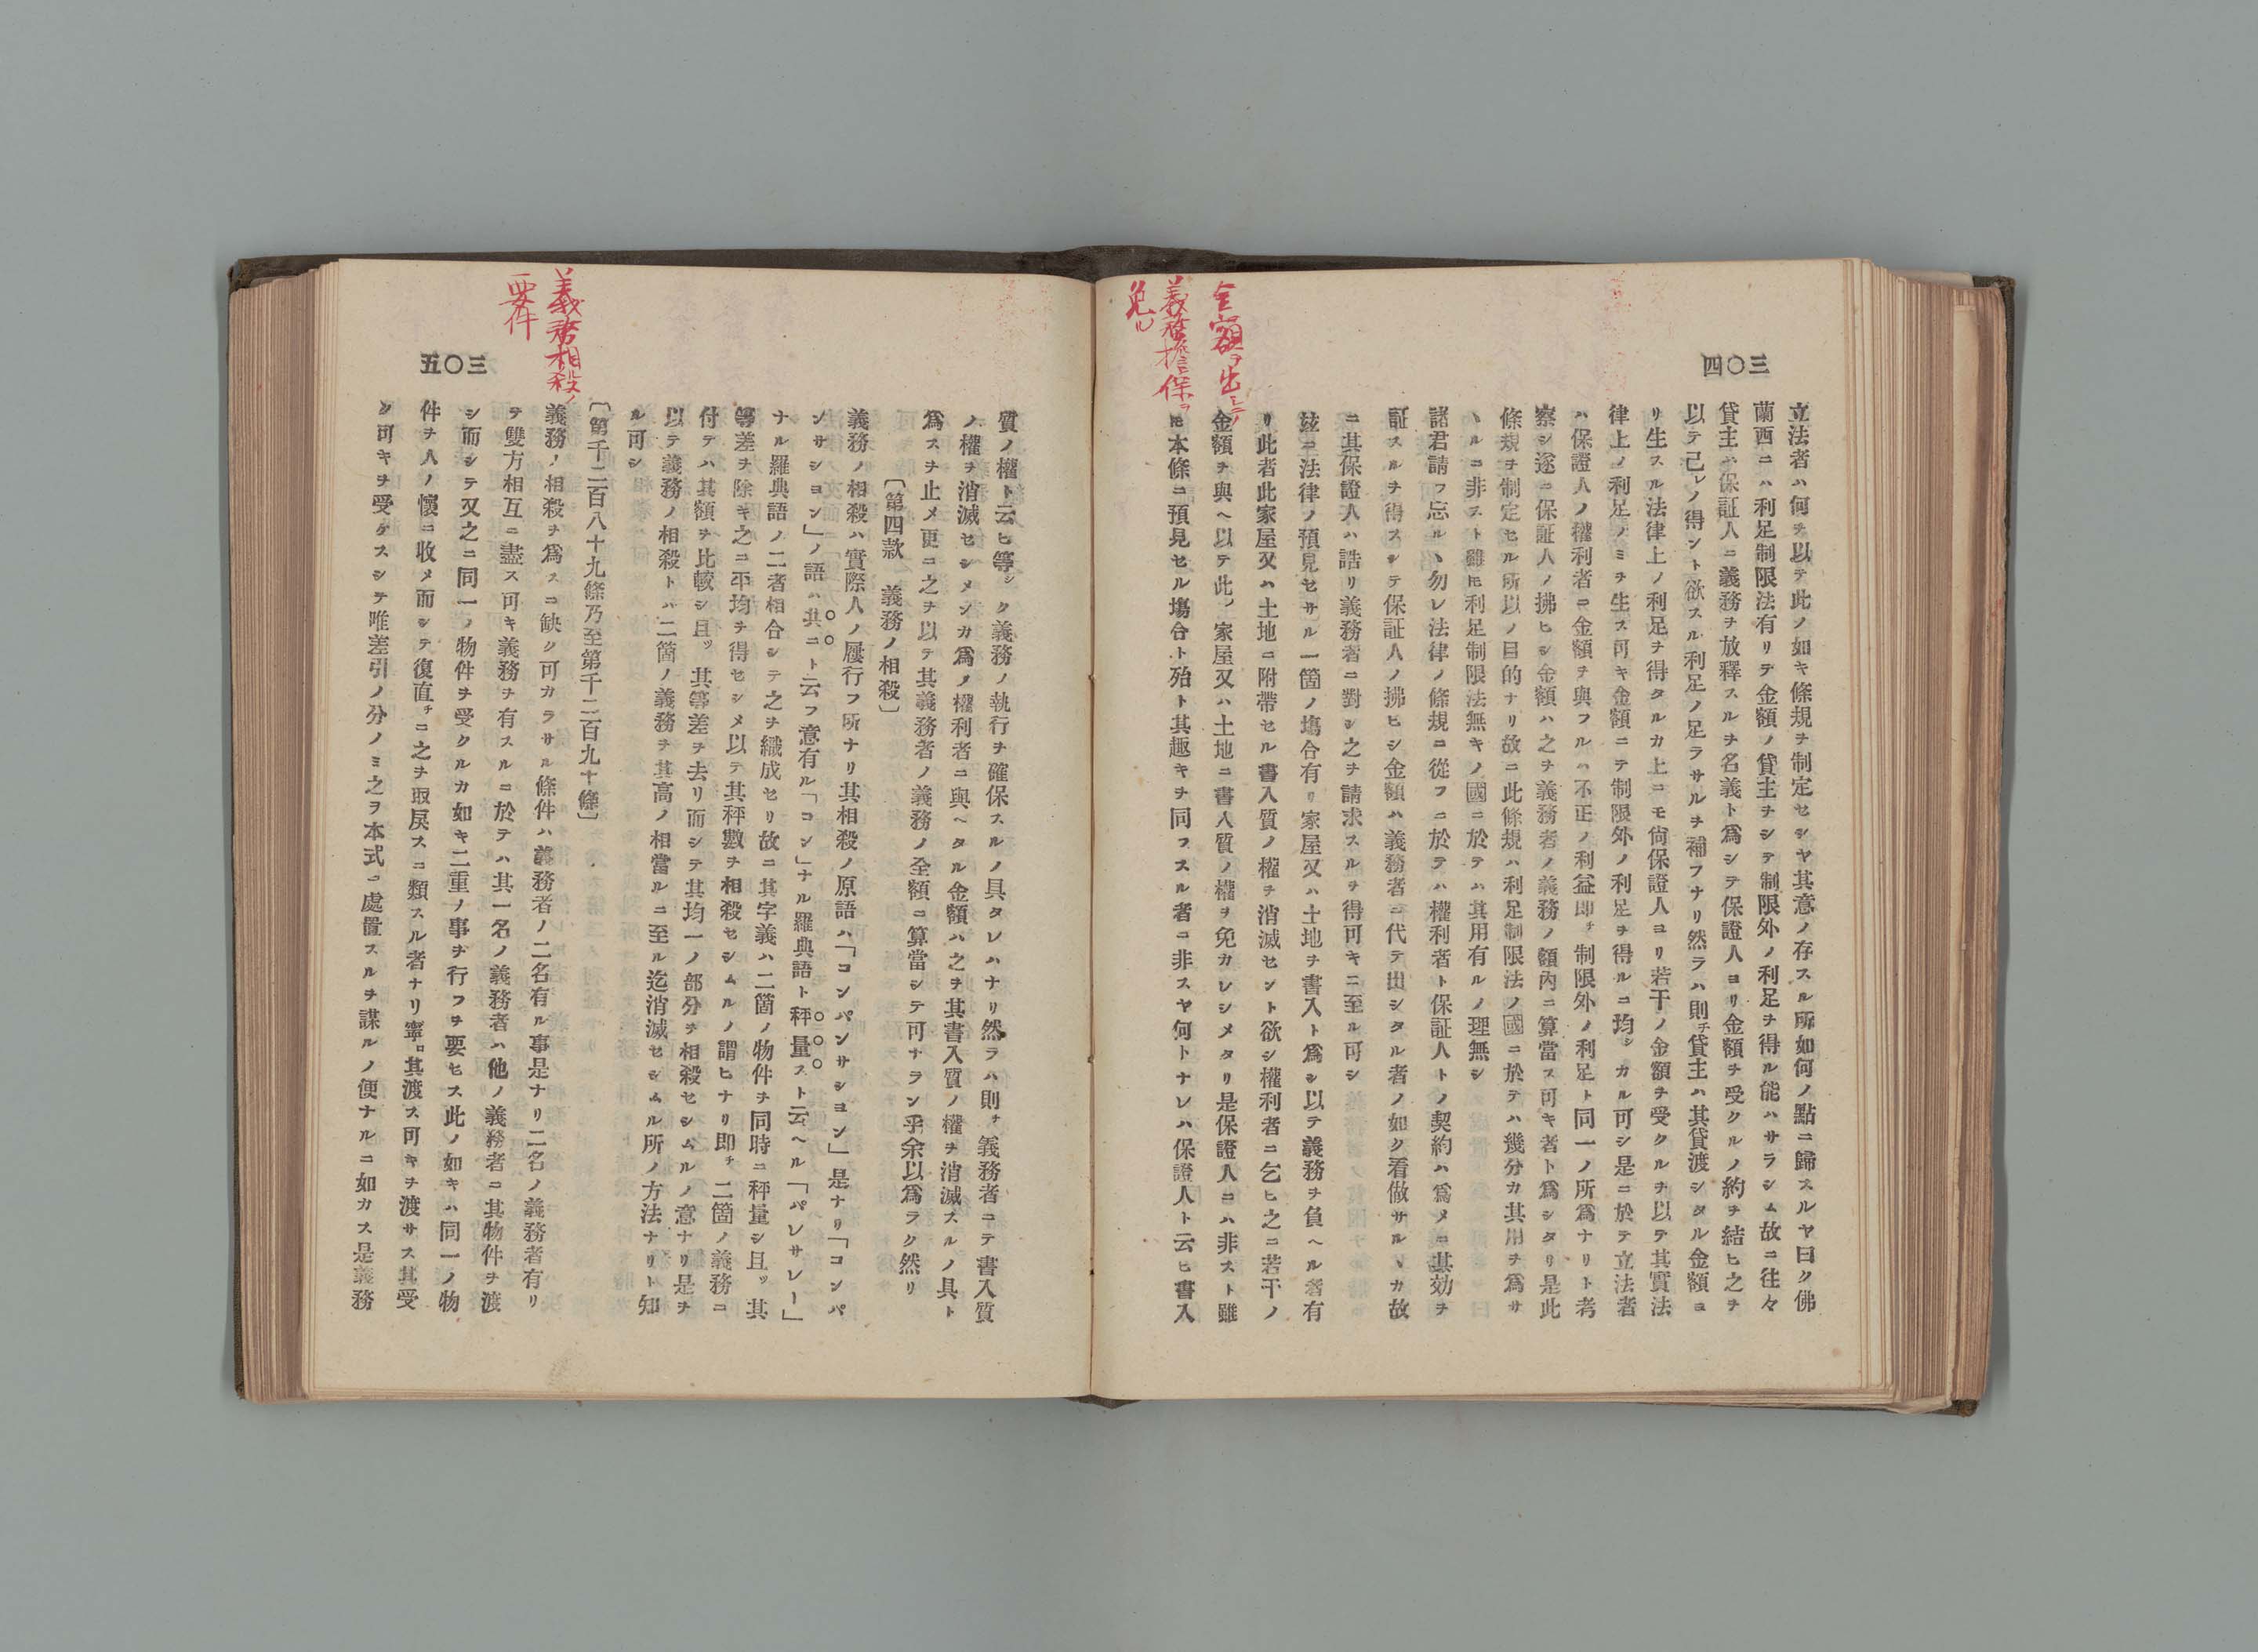 三〇四
金額ヲ出シテ
義務擔保ヲ
免ル
立法者ハ何ヲ以テ此ノ如キ條規ヲ制定セシヤ其意ノ存スル所如何ノ點ニ歸スルヤ曰ク佛
蘭西ニハ利足制限法有リテ金額ノ貸主ヲシテ制限外ノ利足ヲ得ル能ハサラシム故ニ往々
貸主ハ保証人ニ義務ヲ放釋スルヲ名義ト爲シテ保證人ヨリ金額ヲ受クルノ約ヲ結ヒ之ヲ
以テ己レノ得ント欲スル利足ノ足ラサルヲ補フナリ然ラハ則チ貸主ハ其貸渡シタル金額ヨ
リ生スル法律上ノ利足ヲ得タルカ上ニモ尙保證人ヨリ若干ノ金額ヲ受クルヲ以テ其實法
律上ノ利足ノミヲ生ス可キ金額ニテ制限外ノ利足ヲ得ルニ均シカル可シ是ニ於テ立法者
ハ保證人ノ權利者ニ金額ヲ與フルハ不正ノ利益即チ制限外ノ利足ト同一ノ所爲ナリト考
察シ遂ニ保証人ノ拂ヒシ金額ハ之ヲ義務者ノ義務ノ額內ニ算當ス可キ者ト爲シタリ是此
條規ヲ制定セル所以ノ目的ナリ故ニ此條規ハ利足制限法ノ國ニ於テハ幾分カ其用ヲ爲サ
ヽルニ非スト雖𪜈利足制限法無キノ國ニ於テハ其用有ルノ理無シ
諸君請フ忘ルヽ勿レ法律ノ條規ニ從フニ於テハ權利者ト保証人トノ契約ハ爲メニ其効ヲ
証スルヲ得スシテ保証人ノ拂ヒシ金額ハ義務者ニ代テ出シタル者ノ如ク看做サルヽカ故
ニ其保證人ハ誥リ義務者ニ對シ之ヲ請求スルヲ得可キニ至ル可シ
玆ニ法律ノ預見セサル一箇ノ塲合有リ家屋又ハ土地ヲ書入ト爲シ以テ義務ヲ負ヘル者有
リ此者此家屋又ハ土地ニ附帶セル書入質ノ權ヲ消滅セント欲シ權利者ニ乞ヒ之ニ若干ノ
金額ヲ與ヘ以テ此ノ家屋又ハ土地ニ書入質ノ權ヲ免カレシメタリ是保證人ニハ非スト雖
𪜈本條ニ預見セル塲合ト殆ト其趣キヲ同フスル者ニ非スヤ何トナレハ保證人ト云ヒ書入
三〇五
義務相殺ノ
要件
質ノ權ト云ヒ等シク義務ノ執行ヲ確保スルノ具タレハナリ然ラハ則チ義務者ニテ書入質
ノ權ヲ消滅セシメンカ爲メ權利者ニ與ヘタル金額ハ之ヲ其書入質ノ權ヲ消滅スルノ具ト
爲スヲ止メ更ニ之ヲ以テ其義務者ノ義務ノ全額ニ算當シテ可ナラン乎余以爲ラク然リ
〔第四款　義務ノ相殺〕
義務ノ相殺ハ實際人ノ屢行フ所ナリ其相殺ノ原語ハ「コンパンサシヨン」是ナリ「コンパ
ンサシヨン」ノ語ハ共ニト云フ意有ル「コン」ナル羅典語ト秤量スト云ヘル「パンサレー」
ナル羅典語ノ二者相合シテ之ヲ織成セリ故ニ其字義ハ二箇ノ物件ヲ同時ニ秤量シ且ッ其
等差ヲ除キ之ニ平均ヲ得セシメ以テ其秤數ヲ相殺セシムルノ謂ヒナリ即チ二箇ノ義務ニ
付テハ其額ヲ比較シ且ッ其等差ヲ去リ而シテ其均一ノ部分ヲ相殺セシムルノ意ナリ是ヲ
以テ義務ノ相殺トハ二箇ノ義務ヲ其高ノ相當ルニ至ル迄消滅セシムル所ノ方法ナリト知
ル可シ
〔第千二百八十九條乃至第千二百九十條〕
義務ノ相殺ヲ爲スニ缺ク可カラサル條件ハ義務者ノ二名有ル事是ナリ二名ノ義務者有リ
テ雙方相互ニ盡ス可キ義務ヲ有スルニ於テハ其一名ノ義務者ハ他ノ義務者ニ其物件ヲ渡
シ而シテ又之ニ同一ノ物件ヲ受クルカ如キ二重ノ事ヲ行フヲ要セス此ノ如キハ同一ノ物
件ヲ人ノ懷ニ收メ而シテ復直チニ之ヲ取戻スニ類スル者ナリ寧ロ其渡ス可キヲ渡サス其受
ク可キヲ受ケスシテ唯差引ノ分ノミ之ヲ本式ニ處置スルヲ謀ルノ便ナルニ如カス是義務